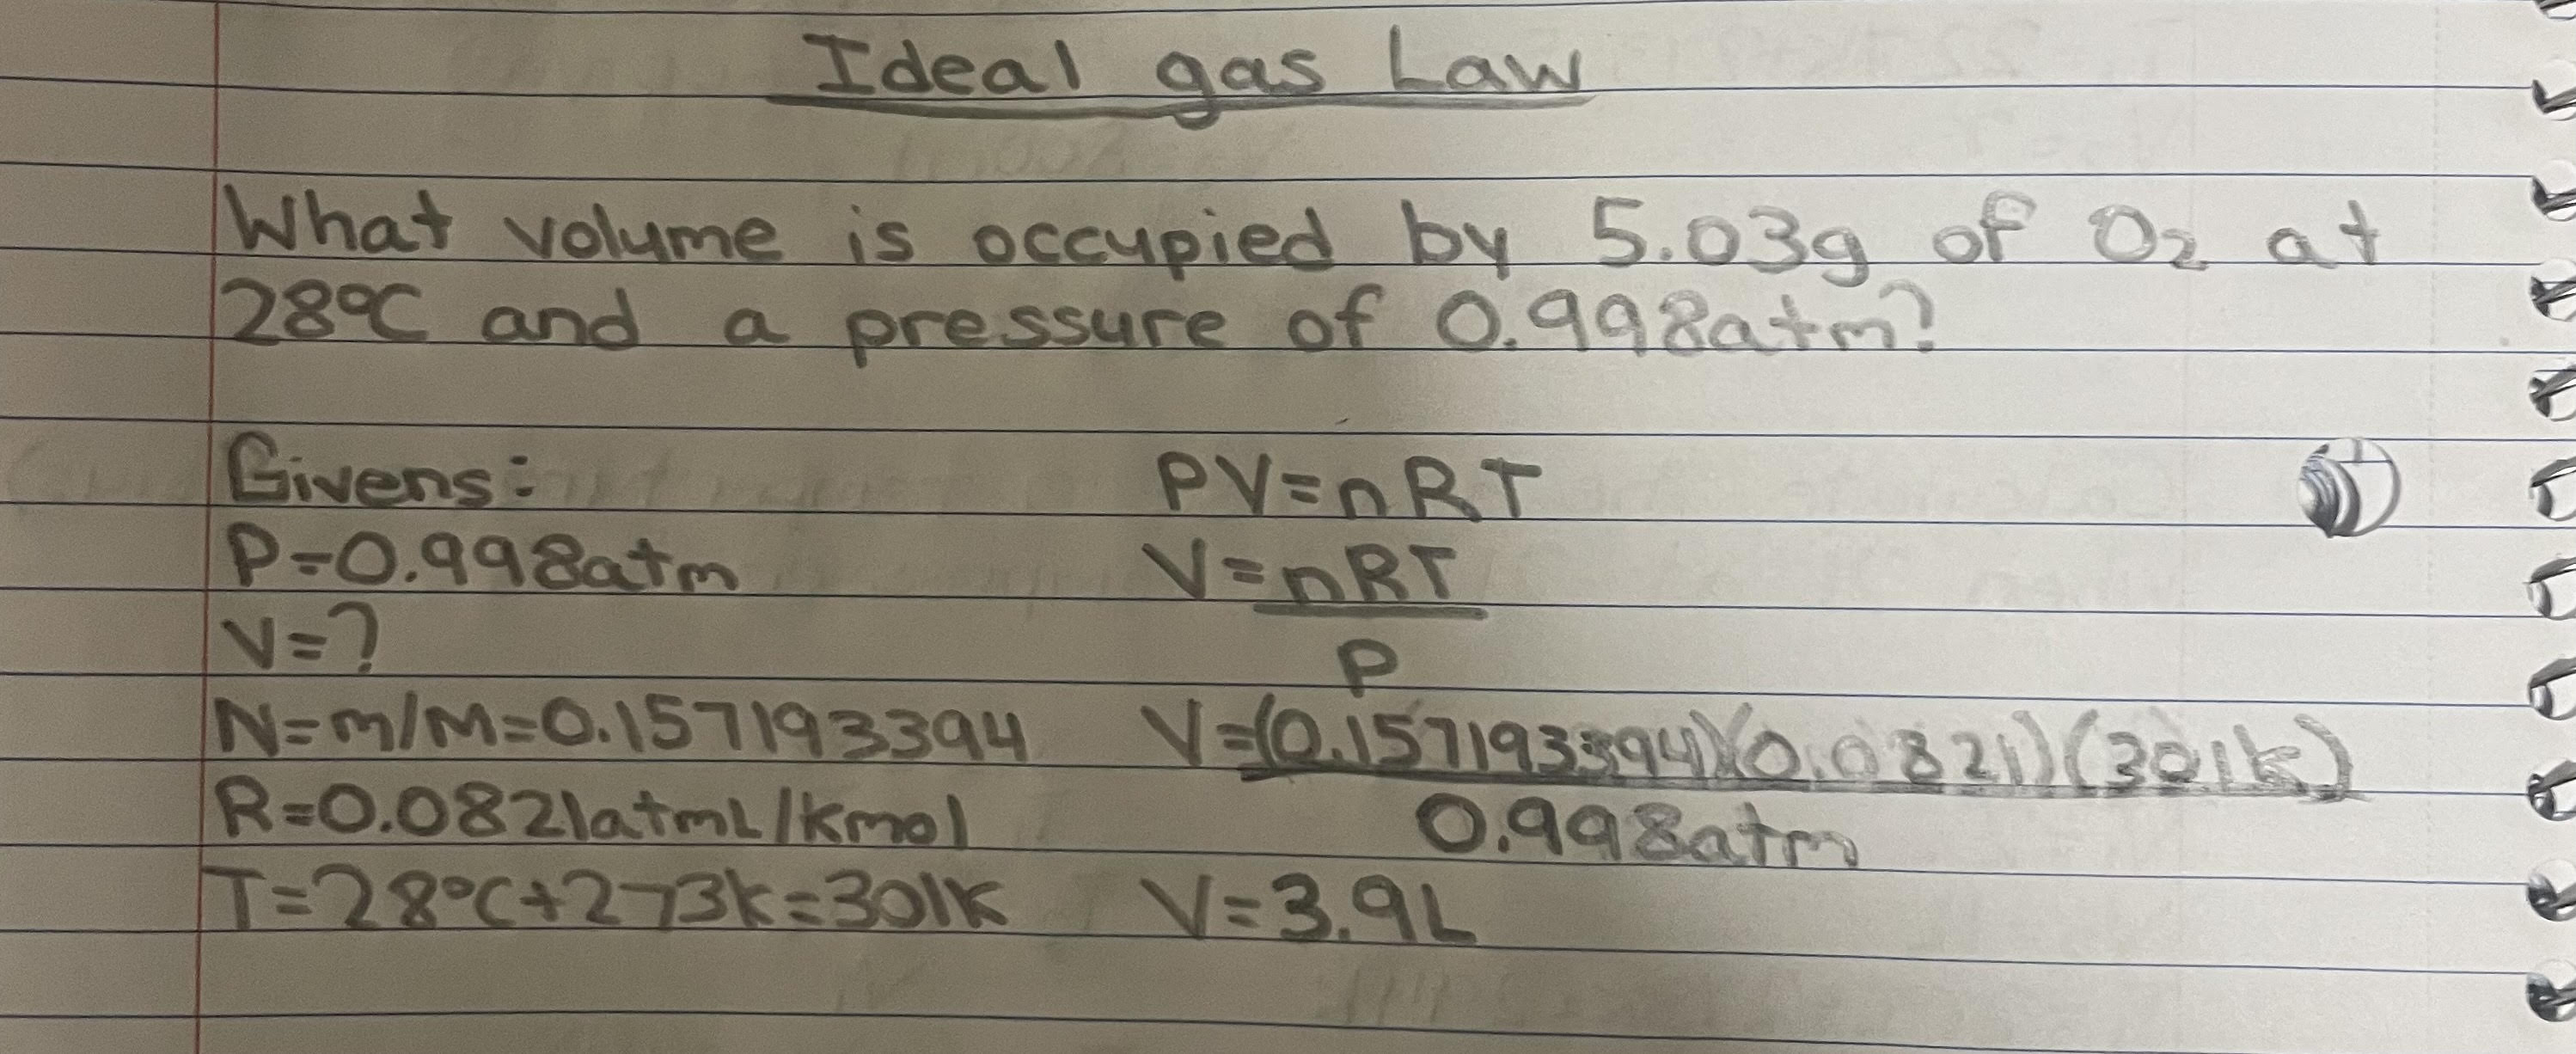 Ideal gas Law
What volume is occupied by 5.03g of O₂ at
28°C and a pressure of 0.998atm?
Givens:
P=0.998atm
V=?
N=m/M=0.157193394
R=0.0821atmL/kmol
T=28°C+273k=301k
PV=nRT
V=nRT
P
V=(0.157193394)(0.0821)(301k)
0.998atm
V=3.9L